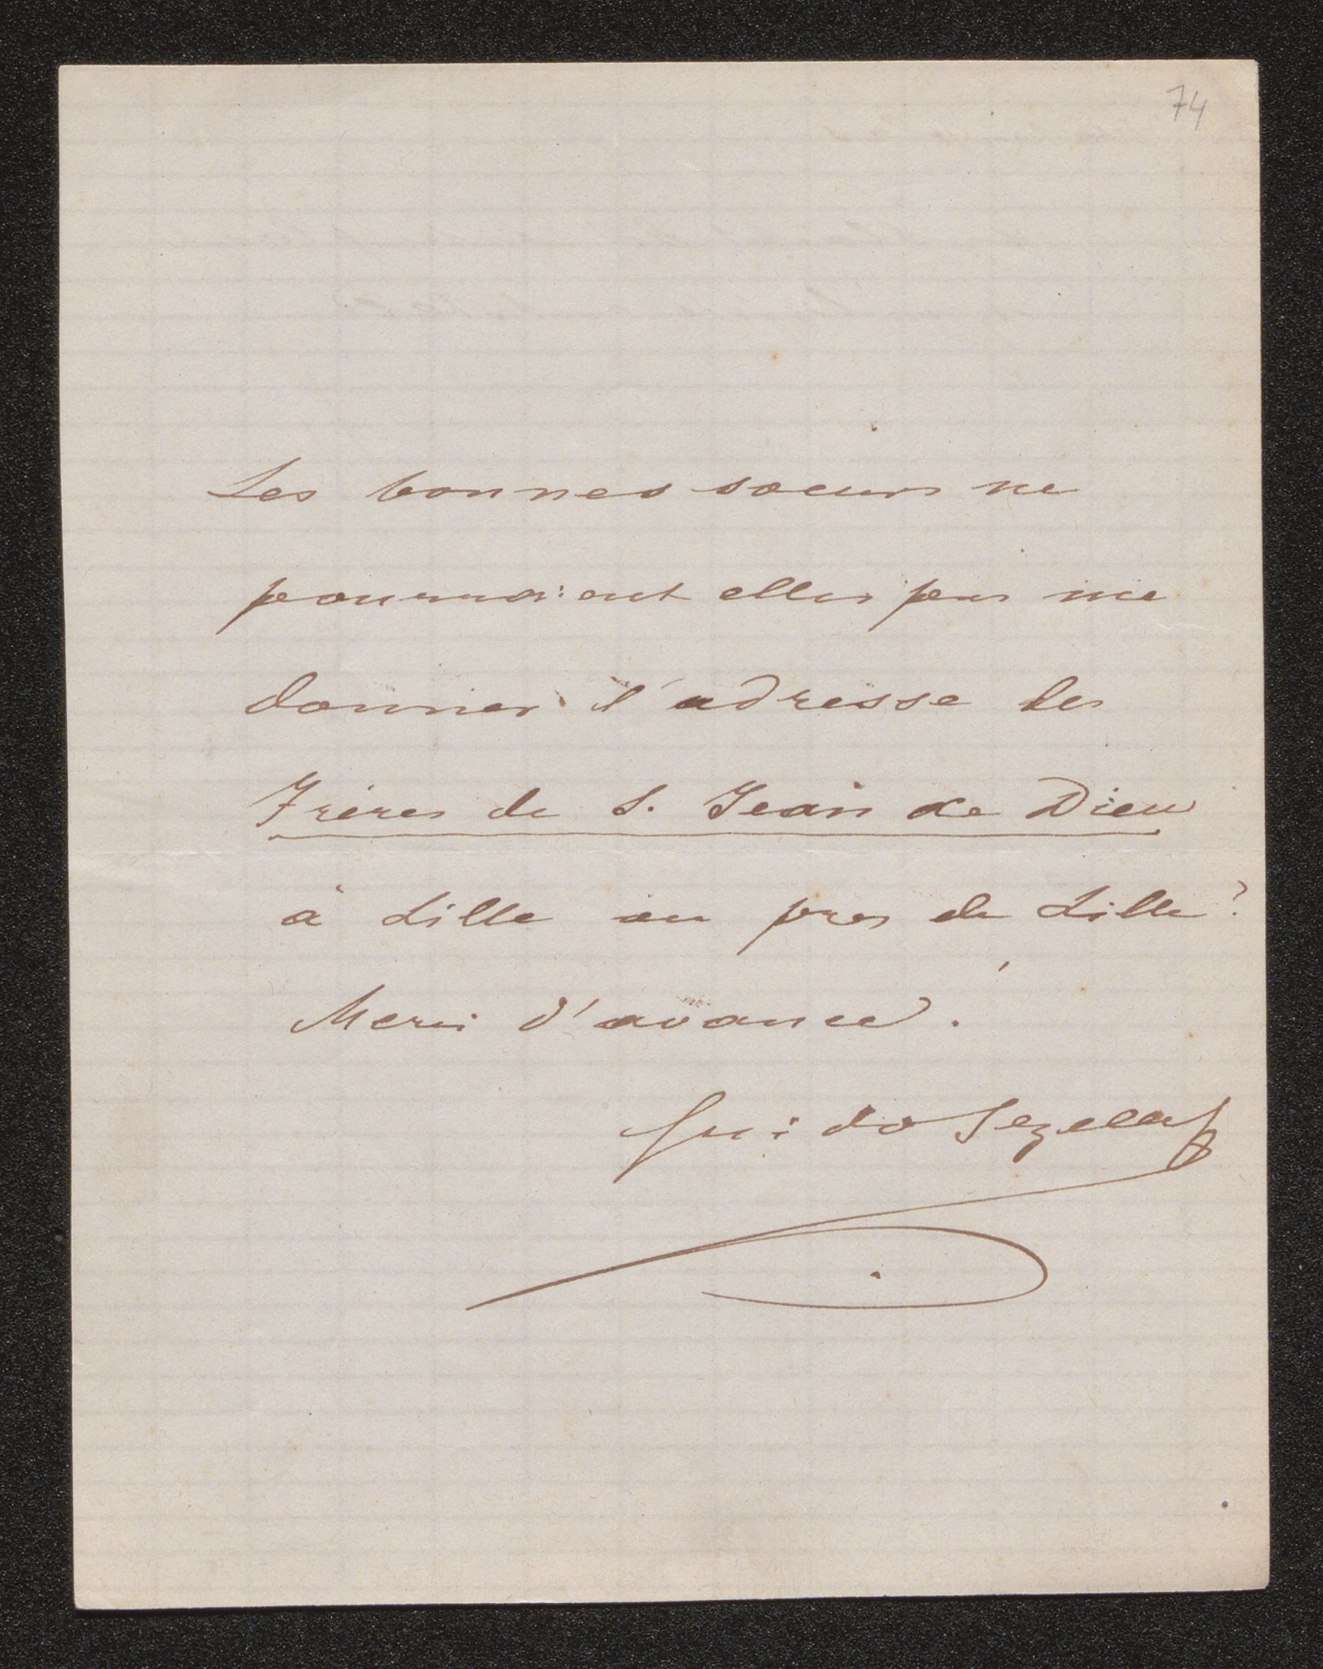 74
Les bonnes soeurs ne
pourraient elles pas me
donner l'adresse des
Frères de S. Jean de Dieu
à Lille ou pres de Lille?
Merci d'avance.
Guido Gezelle